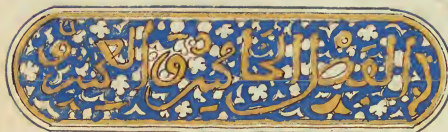 الفصل الخامس والعشرون